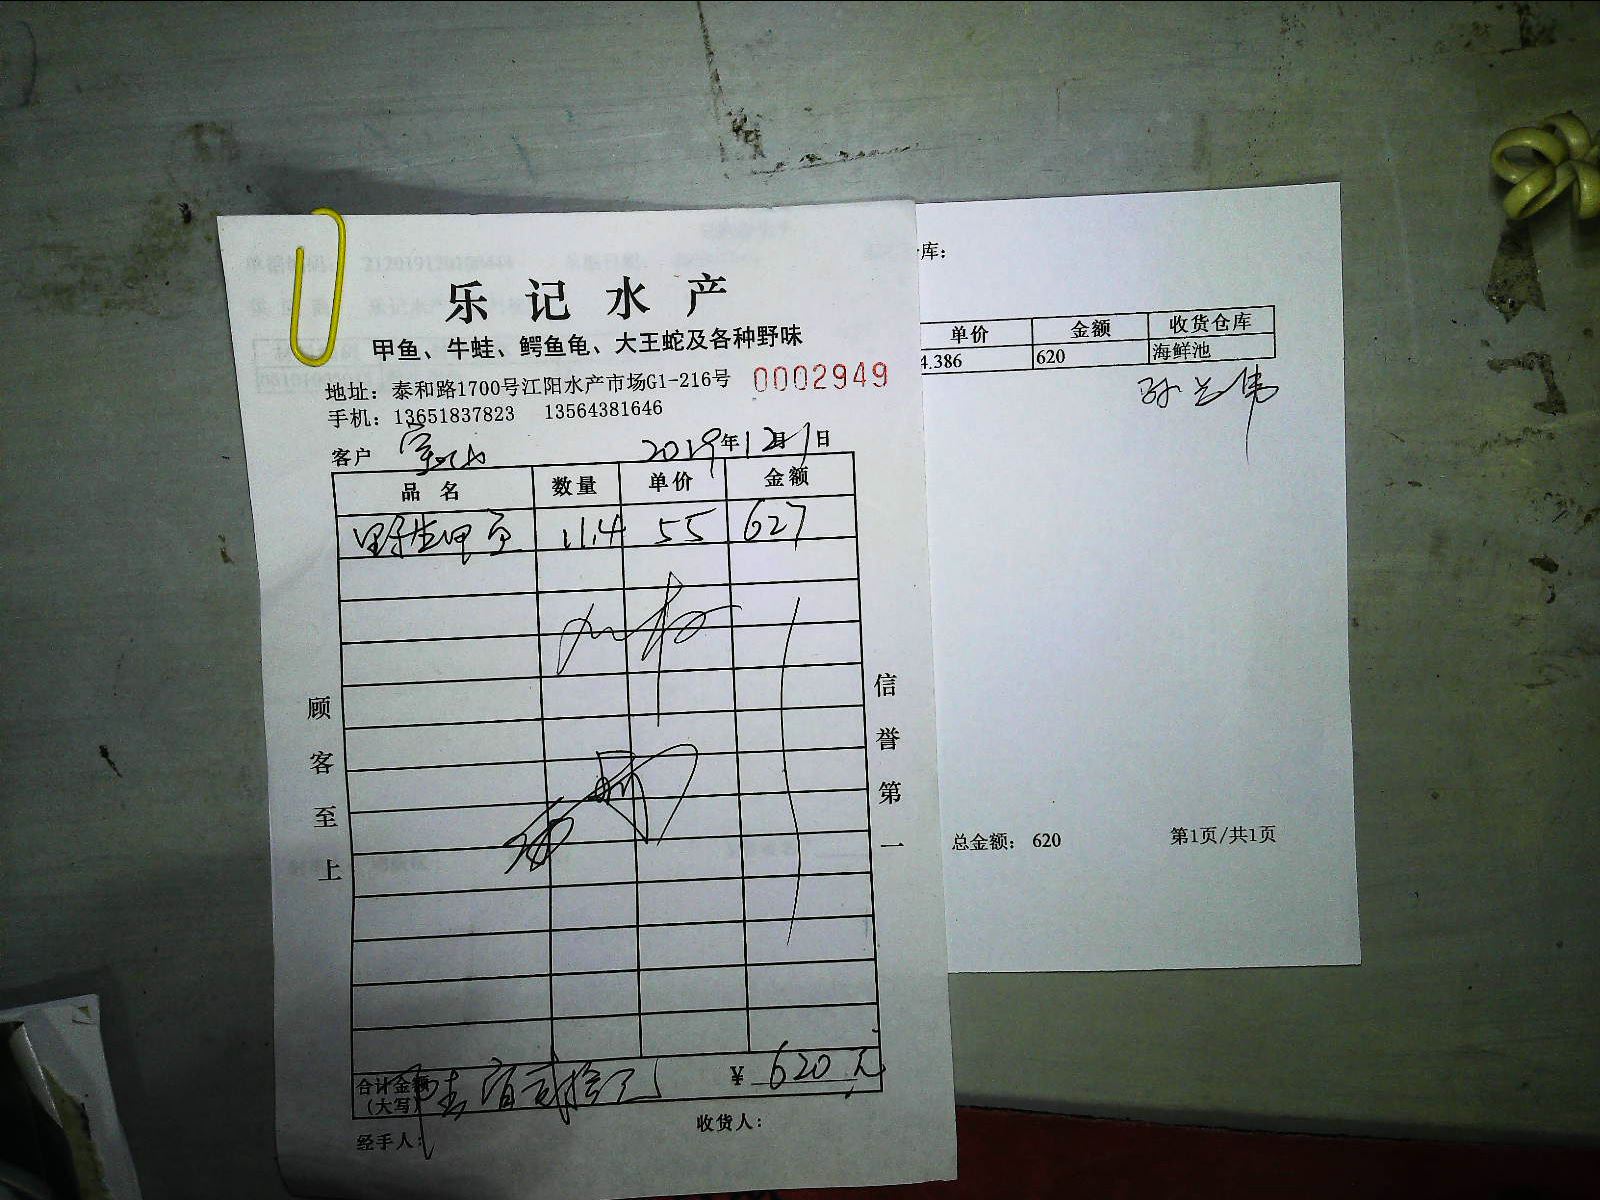 乐记水产
甲鱼、牛蛙、鳄鱼龟、大王蛇及各种野味
地址：泰和路1700号江阳水产市场G1-216号 0002949
手机：13651837823 13564381646
客户 宝山 2019年12月1日
品名 数量 单价 金额
野生甲鱼 11.4 55 627
顾客至上
信誉第一
合计金额 陆百贰拾元 ¥ 620元
（大写）
经手人： 收货人：
库：
单价 金额 收货仓库
4.386 620 海鲜池
孙兰伟
总金额： 620 第1页/共1页